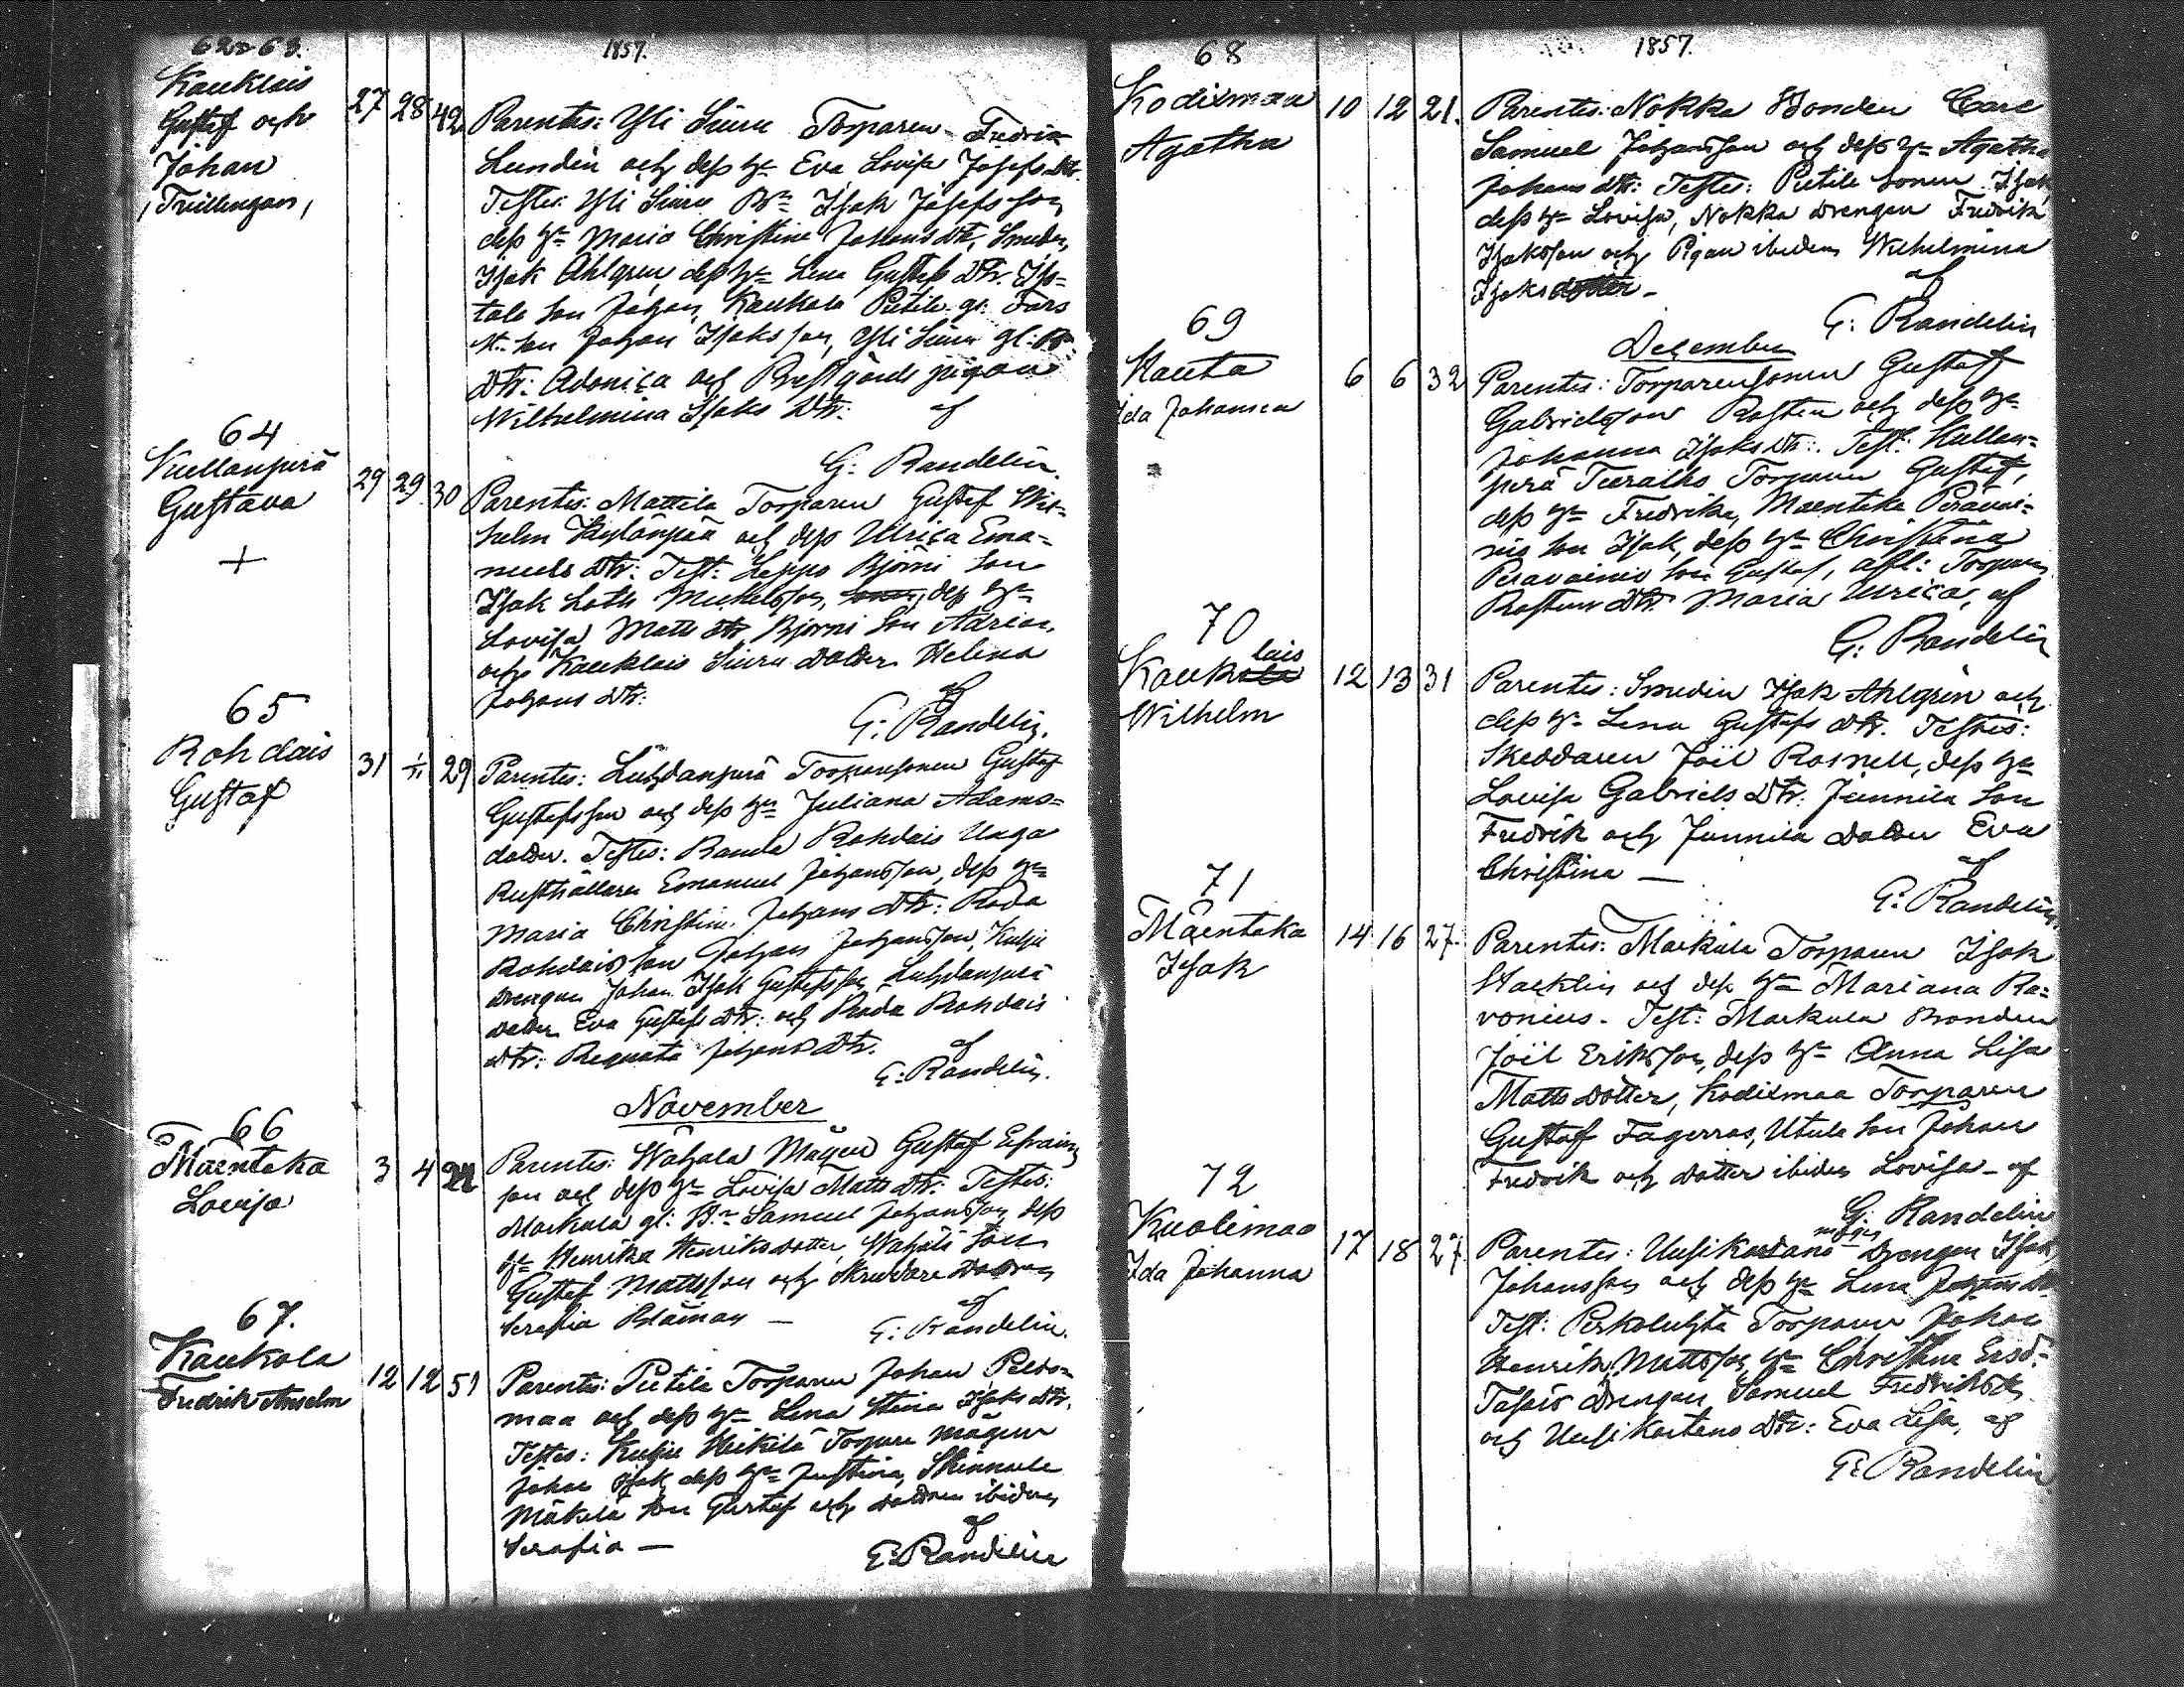 62 o 63.
1857.
Kauklais
Gustaf och
Johan
/Trillingar/
27 28 42
Parentes: Yli Siuru Torparen Fredrik
Lundén och dess H. Eva Lovisa Josefs Dtr.
Testes: Yli Siuru Bn Isak Josefsson,
dess H. Maria Christina Johans Dtr, Smeden,
Isak Ahlgren, dess H. Lena Gustafs Dtr.
tala Son Johan, Kaukola Pietilä gl: Fars
Son Johan Isaksson, Yli Siuru gl: B.
Dtr: Adonica och Prestgårds pigan
Wilhelmina Isaks Dtr: af
G: Randelin.
64
Kuellanperä
Gustava
+
29 29 30
Parentes: Mattila Torparen Gustaf Wil-
helm Kylänpää och dess Ulrica Ema-
nuels Dtr: Test: Seppo Björni Son
Isak Loth Michelsson, dess H.
Lovisa Matts Dtr, Björni Son Adrian,
och Kauklais Siuru Dotter Helena
Johans Dtr: af
G: Randelin.
65
Rohdais
Gustaf
31 1/11 29
Parentes: Luhdanperä Torparesonen Gustaf
Gustafsson och dess H. Juliana Adams-
dotter. Testes: Rauda Rohdais Unga
Rusthållaren Emanuel Johansson, dess H.
Maria Christina Johans Dtr: Roda
Rohdais Son Johan Johansson,
Drengen Johan Isak Gustafsson, Luhdanperä
Dotter Eva Gustafs Dtr: och Roda Rohdais
Dtr: Regnata Johans Dtr. af
G: Randelin.
November
66
Mäentaka
Lovisa
3 4 22
Parentes: Wähälä Mågen Gustaf Efraims
son och dess H. Lovisa Matts Dtr: Testes:
Markula gl: Bn Samuel Johansson, dess
H. Henrika Henriksdotter, Wähälä Son
Gustaf Mattsson och Skreddare Dottren
Serafia af
G: Randelin.
67.
Kaukola
Fredrik Anselm
12 12 51
Parentes: Pietilä Torparen Johan Pelto-
maa och dess H. Lena Stina Isaks Dtr.
Testes: Heikilä Torpare mågen
Johan Isak dess H. Justina, Skinnala
Mäkelä Son Gustaf och dottren ibidem
Serafia — af
G: Randelin
68
1857.
Kodismaa
Agatha
10 12 21.
Parentes: Nokka Bonden Carl
Samuel Johansson och dess H. Agatha
Johans dtr: Testes: Pietilä Sonen Isak,
dess H. Lovisa, Nokka Drengen Fredrik
Isaksson och Pigan ibidem Wilhelmina
Isaksdotter — af
G: Randelin
December
69
Kauta
Ida Johanna
6 6 32
Parentes: Torparesonen Gustaf
Gabrielsson Rosten och dess H.
Johanna Isaks Dtr:. Test: Kullan-
perä Torparen Gustaf,
dess H. Fredrika, Maentaka Perävai-
nio Son Isak, dess H. Christina
Peravainio Son Gustaf, afl: Torparen
Rostens Dtr. Maria Ulrica, af
G: Randelin
70
Kauklais
Wilhelm
12 13 31
Parentes: Smeden Isak Ahlgrén och
dess H. Lena Gustafs Dtr. Testes:
Skeddaren Joël Rosnell, dess H.
Lovisa Gabriels Dtr. Junnila Son
Fredrik och Junnila Dotter Eva
Christina — af
G: Randelin
71
Mäentaka
Isak
14 16 27.
Parentes: Markula Torparen Isak
Stacklin och dess H. Mariana Ra-
vonius. Test: Markula Bonden
Joël Eriksson, dess H. Anna Lisa
Mattsdotter, Kodismaa Torparen
Gustaf Fagerros, Utula Son Johan
Fredrik och dotter ibidem Lovisa — af
G: Randelin
72
Kuolimaa
Ida Johanna
17 18 27
Parentes: Uusikartano mågen Drengen Isak
Johansson och dess H. Lena Johans Dtr.
Test: Perkoluhta Torparen Johan
Henrik Mattsson, H. Christina
Drengen Samuel Fredriksson
och Uusikartano Dtr: Eva Lisa, af
G: Randelin